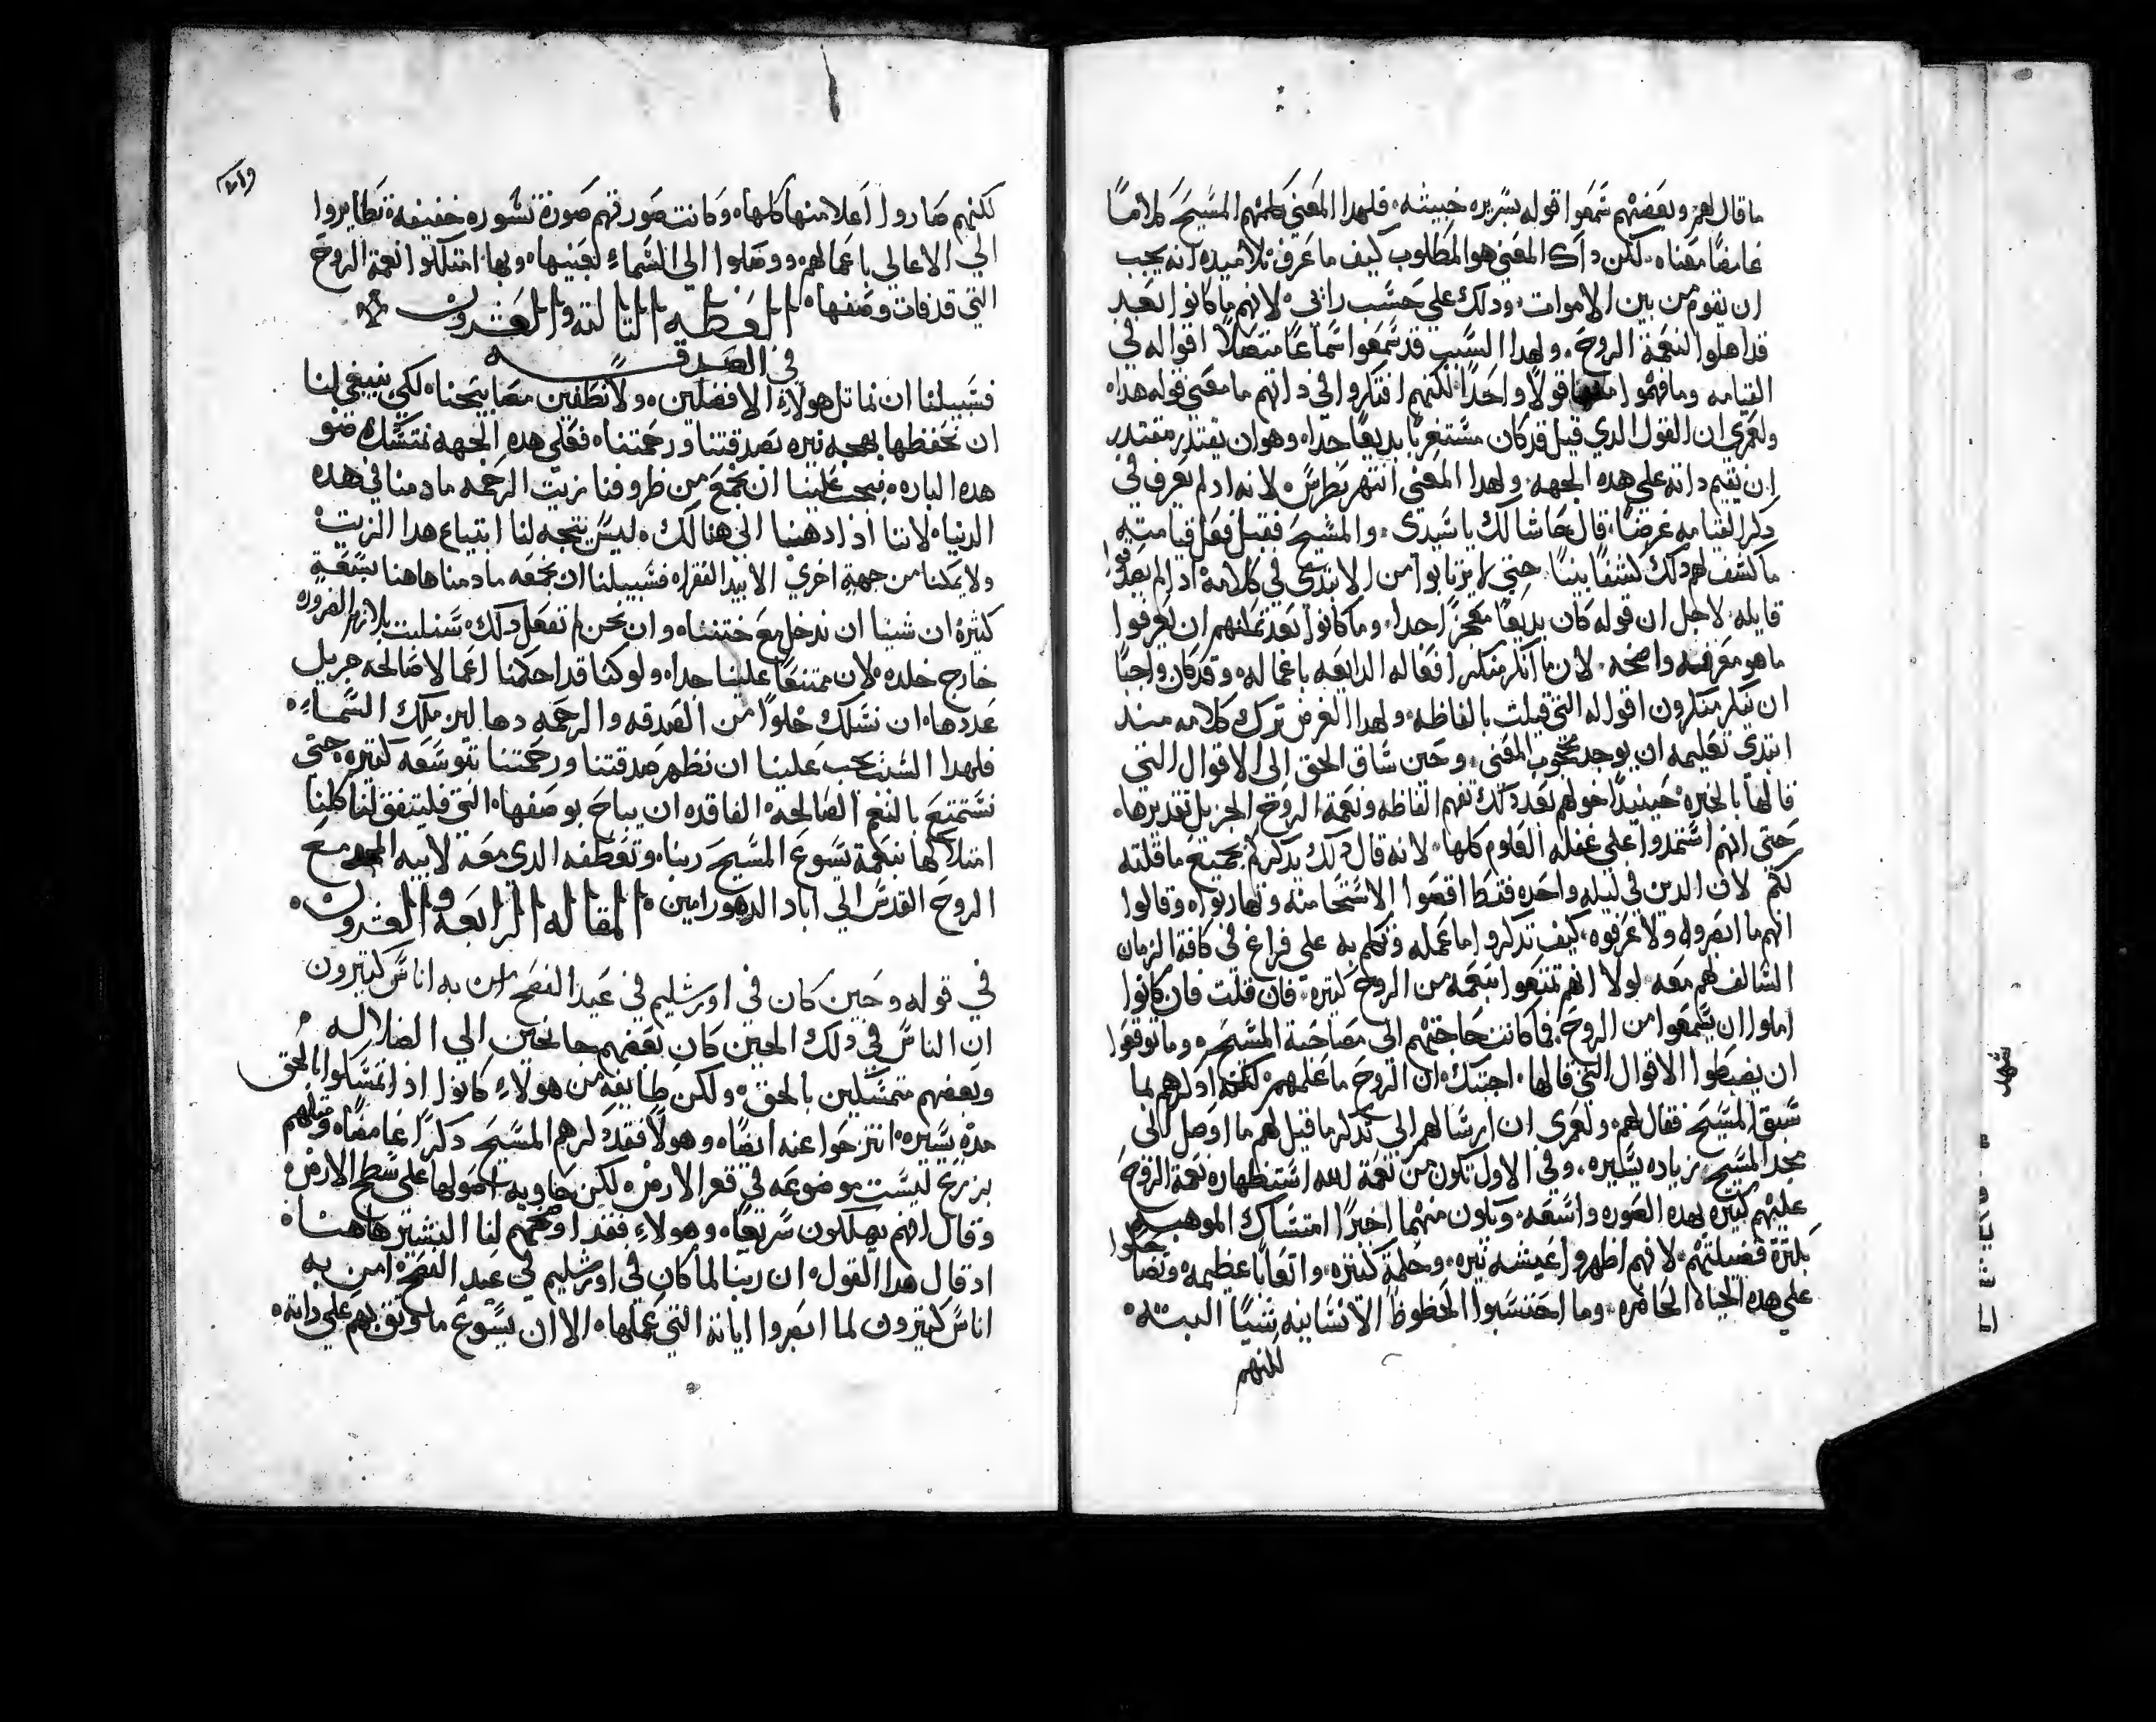 ما قال لهم وبعضهم سمعوا قوله بسريره خبيثه فلهدا المعني كلمهم المسيح كلامًا
غامضًا معناه لكن داك المعني هو المطلوب كيف ما عرف تلاميده انه يجب
ان يقوم من بين الاموات ودلك علي حسب رايي لانهم ما كانوا بعد
قد اهلوا لنعمة الروح ولهدا السبب قد سمعوا سماعًا متصلاً اقواله في
القيامه وما فهموا قولاً واحدًا لكنهم افتكروا في دواتهم ما معني قوله هدا
ولعمري ان القول الدي قيل قد كان مستغربًا بديعًا جدا وهو ان يقتدر مقتدر
ان يقيم داته علي هده الجهه ولهدا المعني انتهر بطرس لانه اد لم يعرف في
دكر القيامه غرضًا قال حاشا لك يا سيدي والمسيح فقبل فعل قيامته
ما كشف لهم دلك كشفًا بينًا حتي لا يرتابوا من الابتدي في كلامه اد لم يعرفوا
قايله لاجل ان قوله كان بديعًا معجزًا جدا وما كانوا بعد يمكنهم ان يعرفوا
ما هو معرفه واضحه لان ما انكر منكر افعاله الدايعه باعماله وقد كان واجبًا
ان ينكر منكرون اقواله التي قيلت بالفاظه ولهدا الغرض ترك كلامه مند
ابتدي تعليمه ان يوجد محجوب المعني وحين ساق الحق الي الاقوال التي
قالها بالخبره حينيدًا خولهم بعد دلك تفهم الفاظه ونعمة الروح الجزيل تقديرها
حتي انهم استمدوا علي غفله العلوم كلها لانه قال داك يدكركم بجميع ما قلته
لكم لان الدين في ليله واحده فقط اقصوا الاستحا منه وتهاربوا وقالوا
انهم ما ابصروه ولا عرفوه كيف تدكروا ما عمله وتكلم به علي فراغ في كافة الزمان
السالف لهم معه لولا انهم تمتعوا بنعمه من الروح كتيره فان قلت فان كانوا
املوا ان يسمعوا من الروح فما كانت حاجتهم الي مصاحبة المسيح وما توقعوا
ان يضبطوا الاقوال التي قالها اجتبك ان الروح ما علمهم لكنه ادكرهم بما
سبق المسيح فقال لهم ولعمري ان ارسالهم الي تدكر ما قيل لهم ما اوصل الي
مجد المسيح زياده يسيره وفي الاول تكون من نعمة الله استظهاره نعمة الروح
عليهم كتيره بهده الصوره واسعه وتكون منهما اخيرًا امتساك الموهبه
بكترة فضيلتهم لانهم اظهروا عيشه نيره وحكمة كتيره واتعابًا عظيمه وتضاحكوا
علي هده الحياه الحاضره وما احتسبوا الحظوظ الانسانيه شيًا البته
لكنهم
لكنهم صاروا اعلا منها كلها وكانت صورتهم صورة نسوره خفيفة تطايروا
الي الاعالي باعمالهم ووصلوا الي السماء بعينها وبها امتلكوا نعمة الروح
التي قد فات وصفها العظه التالته والعشرون
في الصدقه
فسبيلنا ان نماتل هولاء الافضلين ولا نطفين مصابيحنا لكي ينبغي لنا
ان نحفظها بهجه نيره بصدقتنا ورحمتنا فعلي هده الجهه نمتسك ضو
هده الباره فيجب علينا ان نجمع من ظروفنا زيت الرحمه ما دمنا في هده
الدنيا لاننا ادا دهبنا الي هنالك ليس يتجه لنا ابتياع هدا الزيت
ولا يمكنا من جهة اخري الا بيد الفقرا فسبيلنا ان نجمعه ما دمنا هاهنا بسعة
كتيره ان شينا ان ندخل مع ختننا وان نحن لم نفعل دلك سنلبت بلازم الضروره
خارج خدره لان ممتنعًا علينا جدا ولو كنا قد احكمنا اعمالا صالحه جزيل
عددها ان نسلك خلوًا من الصدقه والرحمه دهاليز ملك السماء
فلهدا السبب يجب علينا ان نظهر صدقتنا ورحمتنا بتوسعه كتيره حتي
نستمتع بالنعم الصالحه الفاقده ان يباح بوصفها التي فليتفق لنا كلنا
امتلاكها بنعمة يسوع المسيح ربنا وتعطفه الدي معه لابيه المجد مع
الروح القدس الي اباد الدهور امين المقاله الرابعه والعشرون
في قوله وحين كان في اورشليم في عيد الفصح امن به اناس كتيرون
ان الناس في دلك الحين كان بعضهم جانحين الي الضلاله
وبعضهم متمسكين بالحق ولكن طايفة من هولاء كانوا ادا تمسكوا بالحق
مدة يسيره انتزحوا عنه ايضًا وهولا فقد دكرهم المسيح دكرًا غامضًا ومتلهم
بزرع ليست موضوعه في قعر الارض لكن حاويه اصولها علي سطح الارض
وقال انهم يهلكون سريعًا وهولاء فقد اوضحهم لنا البشير هاهنا
اد قال هدا القول ان ربنا لما كان في اورشليم في عيد الفصح امن به
اناس كتيرون لما ابصروا اياته التي عملها الا ان يسوع ما وتق بهم علي داته